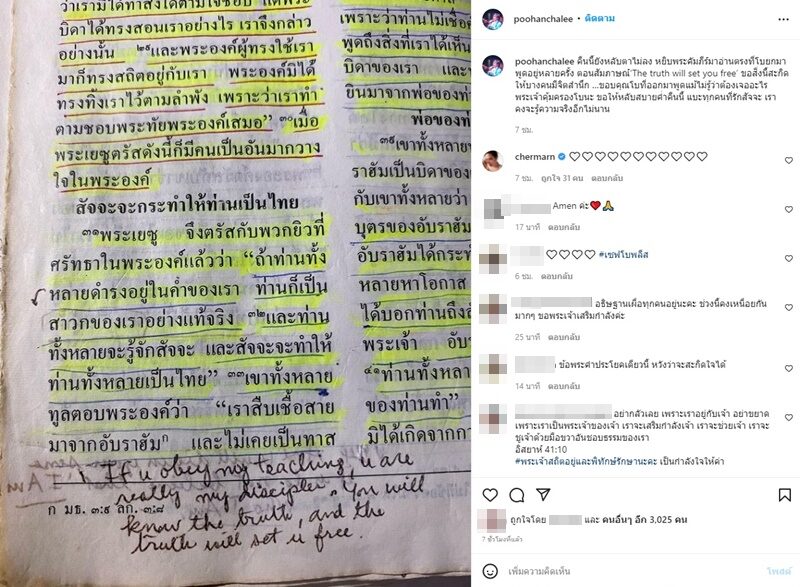 เรามิได้ทำสิ่งใดตามใจชอบ แต่พระ
บิดาได้ทรงสอนเราอย่างไร เราจึงกล่าว
อย่างนั้น ๒๙และพระองค์ผู้ทรงใช้เรา
มาก็ทรงสถิตอยู่กับเรา พระองค์มิได้
ทรงทิ้งเราไว้ตามลำพัง เพราะว่าเราทำ
ตามชอบพระทัยพระองค์เสมอ” ๓๐เมื่อ
พระเยซูตรัสดังนี้ก็มีคนเป็นอันมากวาง
ใจในพระองค์
สัจจะจะกระทำให้ท่านเป็นไทย
๓๑พระเยซู จึงตรัสกับพวกยิวที่
ศรัทธาในพระองค์แล้วว่า “ถ้าท่านทั้ง
หลายดำรงอยู่ในคำของเรา ท่านก็เป็น
สาวกของเราอย่างแท้จริง ๓๒และท่าน
ทั้งหลายจะรู้จักสัจจะ และสัจจะจะทำให้
ท่านทั้งหลายเป็นไทย” ๓๓เขาทั้งหลาย
ทูลตอบพระองค์ว่า “เราสืบเชื้อสาย
มาจากอับราฮัมก และไม่เคยเป็นทาส
If u obey my teaching, u are
really my disciples "You will
know the truth, and the
truth will set u free.
ก มธ. ๓:๙ ลก. ๓:๘
เพราะว่าท่านไม่เชื่อ
พูดถึงสิ่งที่เราได้เห็น
บิดาของเรา และ
ยินมาจากพ่อของท่าน
พ่อของท่าน
๓๙เขาทั้งหลาย
ราฮัมเป็นบิดาของ
กับเขาทั้งหลายว่า
บุตรของอับราฮัม
อับราฮัมได้กระทำ
หลายหาโอกาส
ได้บอกท่านถึงสั
พระเจ้า อับ
๔๑ท่านทั้งหลาย
ของท่านทำ”
มิได้เกิดจากกา
poohanchalee • ติดตาม
poohanchalee คืนนี้ยังหลับตาไม่ลง หยิบพระคัมภีร์มาอ่านตรงที่โบยกมา
พูดอยู่หลายครั้ง ตอนสัมภาษณ์‘The truth will set you free’ ขอสิ่งนี้สะกิด
ให้บางคนมีจิตสำนึก ...ขอบคุณโบที่ออกมาพูดแม้ไม่รู้ว่าต้องเจออะไร
พระเจ้าคุ้มครองโบนะ ขอให้หลับสบายค่ำคืนนี้ แบะทุกคนที่รักสัจจะ เรา
คงจะรู้ความจริงอีกไม่นาน
7 ชม.
chermarn ♡♡♡♡♡♡♡♡♡♡♡
7 ชม. ถูกใจ 31 คน ตอบกลับ
Amen ค่ะ❤️🙏
17 นาที ตอบกลับ
♡♡♡♡ #เซฟโบพลีส
6 ชม. ตอบกลับ
อธิษฐานเผื่อทุกคนอยู่นะคะ ช่วงนี้คงเหนื่อยกัน
มากๆ ขอพระเจ้าเสริมกำลังค่ะ
25 นาที ตอบกลับ
ข้อพระคำประโยคเดียวนี้ หวังว่าจะสะกิดใจได้
14 นาที ตอบกลับ
อย่ากลัวเลย เพราะเราอยู่กับเจ้า อย่าขยาด
เพราะเราเป็นพระเจ้าของเจ้า เราจะเสริมกำลังเจ้า เราจะช่วยเจ้า เราจะ
ชูเจ้าด้วยมือขวาอันชอบธรรมของเรา
อิสยาห์ 41:10
#พระเจ้าสถิตอยู่และพิทักษ์รักษานะคะ เป็นกำลังใจให้ค่า
ถูกใจโดย และ คนอื่นๆ อีก 3,025 คน
7 ชั่วโมงที่แล้ว
เพิ่มความคิดเห็น...
โพสต์